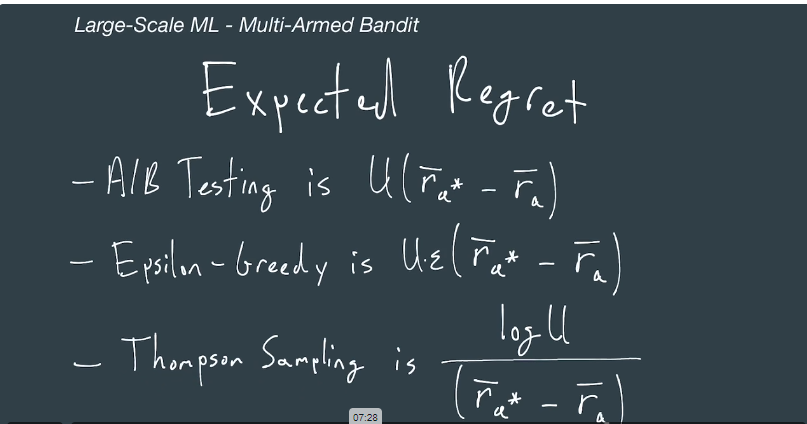 Large-Scale ML - Multi-Armed Bandit
Expected Regret
- A/B Testing is U(r̅ₐ* - r̅ₐ)
- Epsilon-Greedy is U·ε(r̅ₐ* - r̅ₐ)
- Thompson Sampling is log U / (r̅ₐ* - r̅ₐ)
07:28